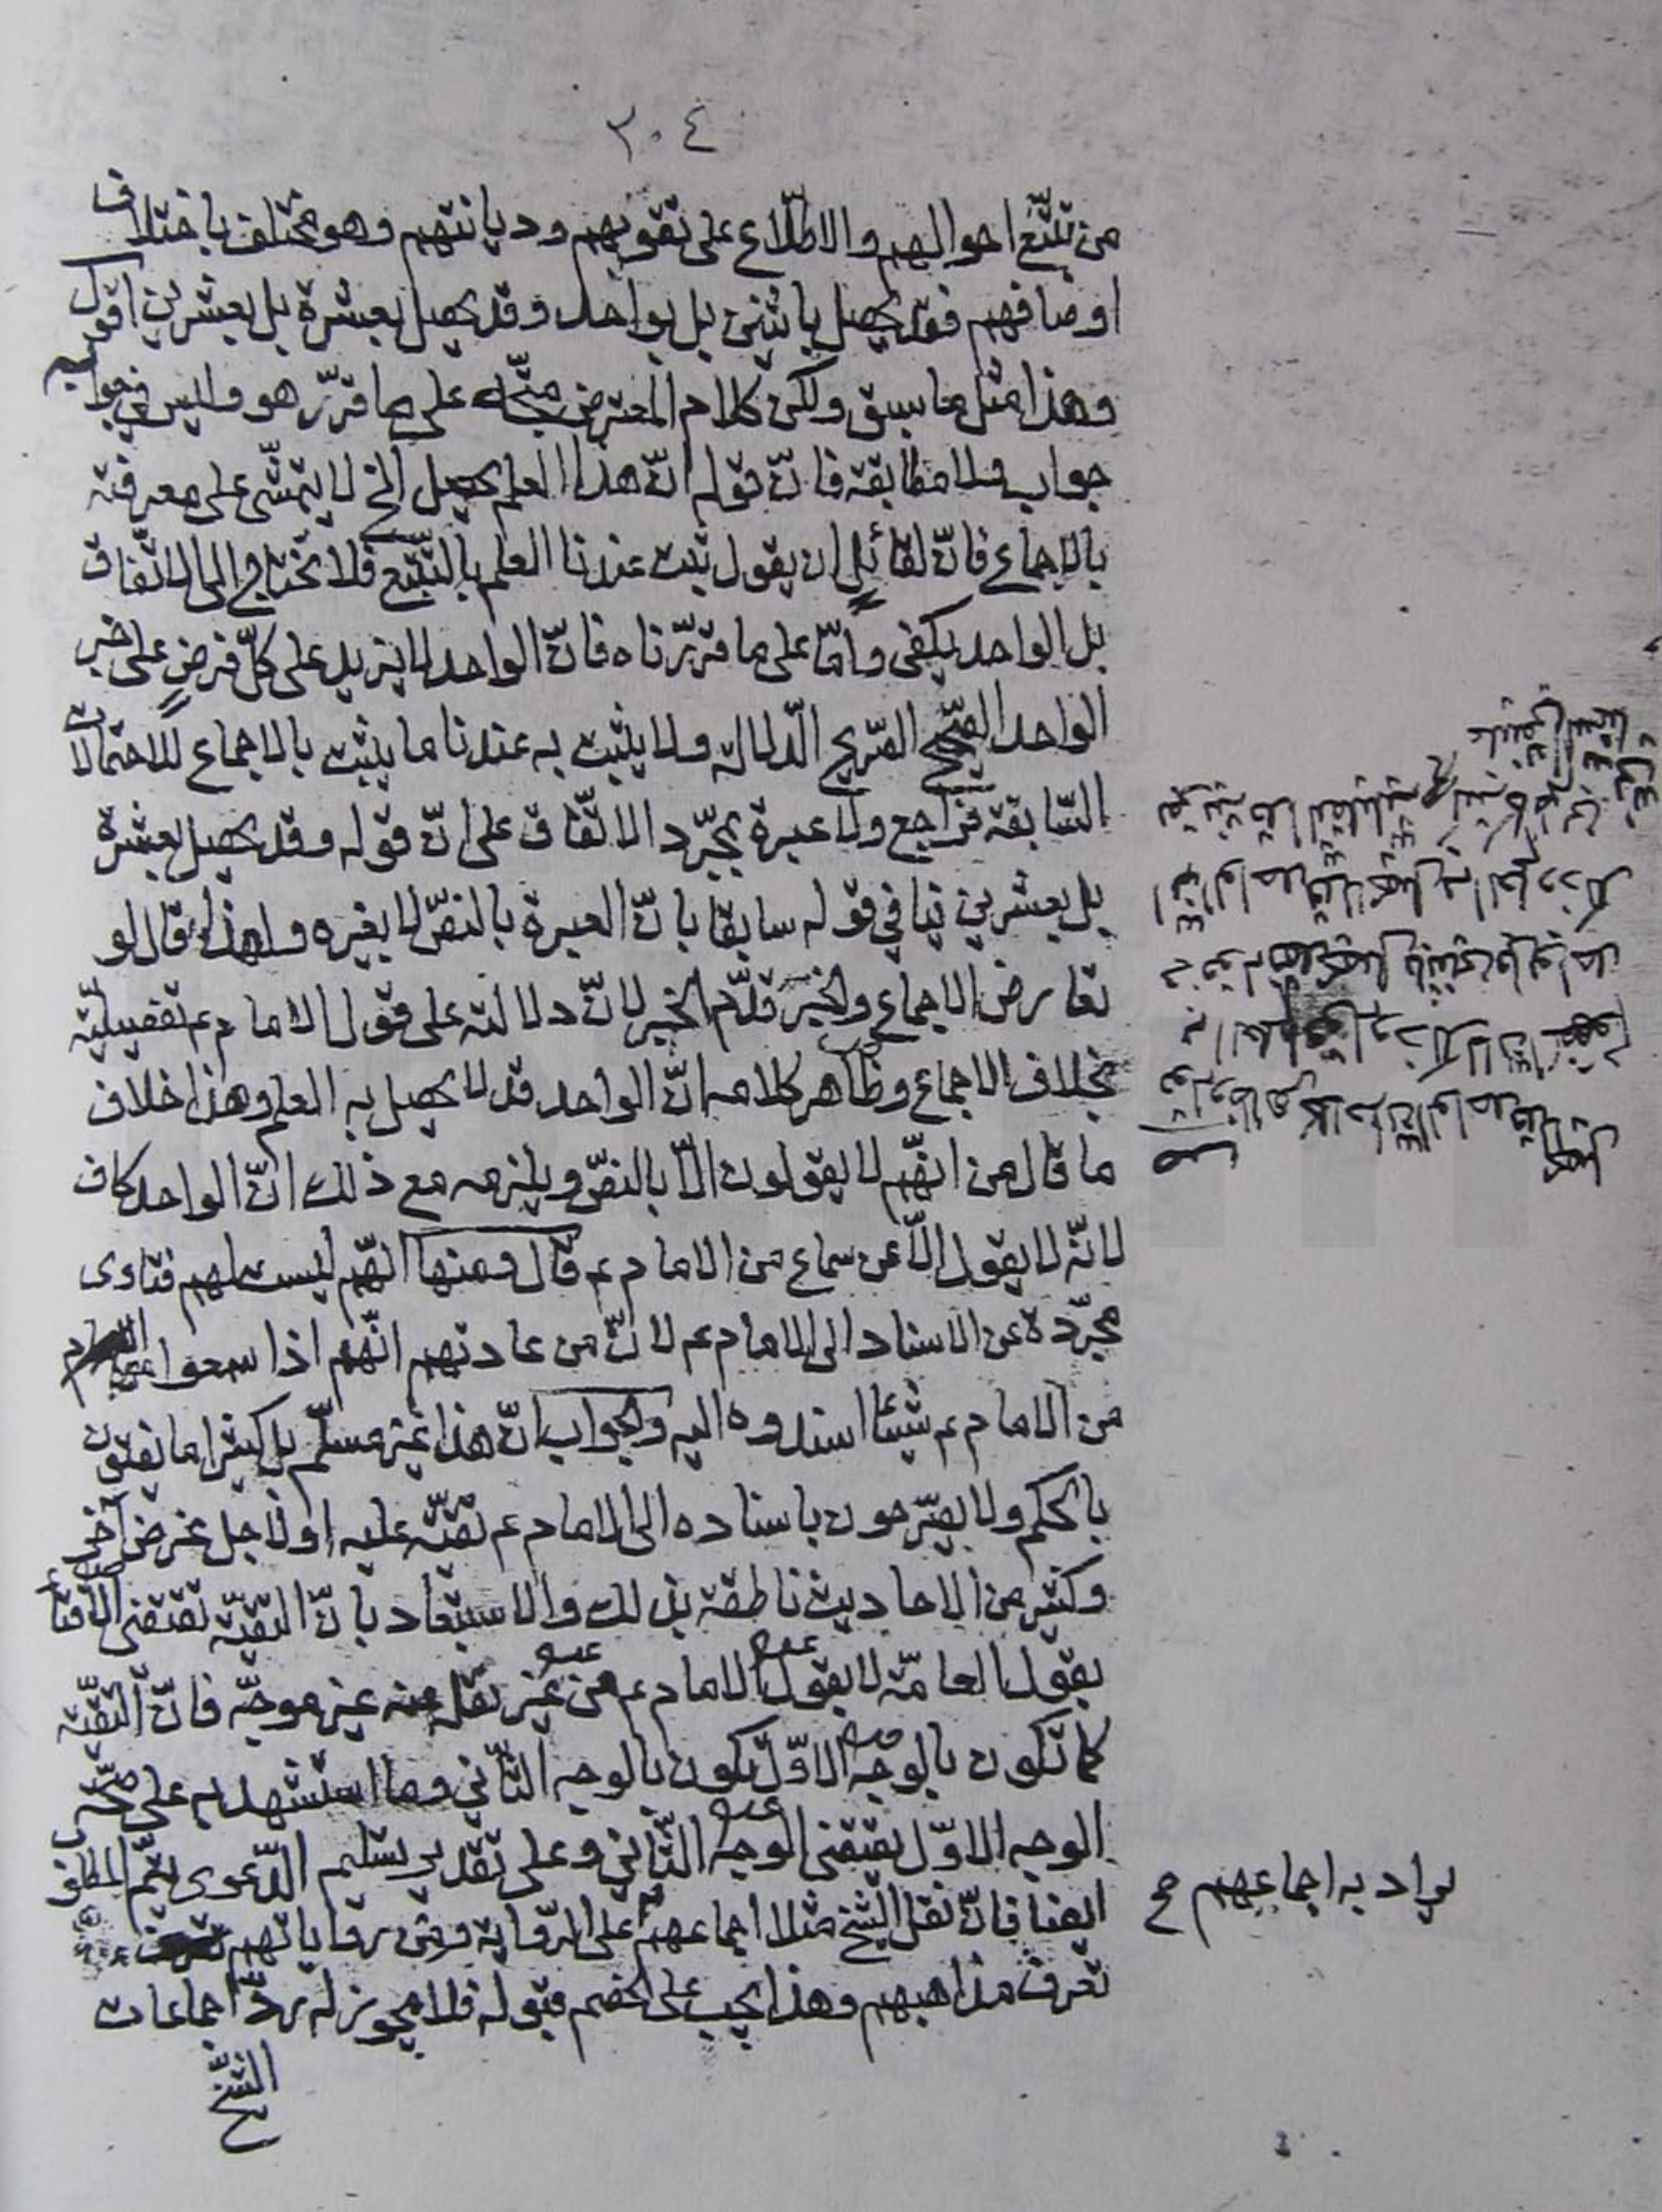 ٣٠٤
من تتبّع احوالهم والاطّلاع على تقويهم وديانتهم وهو مختلف باختلاف
اوصافهم فقد يحصل باثنين بل بواحد وقد يحصل بعشرة بل بعشرين اقول
وهذا مثل ما سبق ولكن كلام المعترض متّجه على ما قرّر هو وليس في جوابه
جواب ولا مطابقة فانّ قوله انّ هذا العلم يحصل الخ لا يتمشّى على معرفته
بالاجماع فانّ لقائل ان يقول ثبت عندنا العلم بالتتبّع فلا نحتاج الى الاتّفاق
بل الواحد يكفى وامّا على ما قرّرناه فانّ الواحد لا يزيد على كلّ فرض على خبر
الواحد الصّحيح الصّريح الدّلالة ولا يثبت به عندنا ما يثبت بالاجماع للاحتمالات
السّابقة فراجع ولا عبرة بمجرّد الاتّفاق على انّ قوله وقد يحصل بعشرة
بل بعشرين ينافي قوله سابقا بانّ العبرة بالنصّ لا بغيره ولهذا قال لو
تعارض الاجماع والخبر قدّم الخبر لانّ دلالته على قول الامام ع تفصيليّة
بخلاف الاجماع وظاهر كلامه انّ الواحد قد لا يحصل به العلم وهذا خلاف
ما قال من انّهم لا يقولون الّا بالنصّ ويلزمه مع ذلك انّ الواحد كاف
لانّه لا يقول الّا عن سماع من الامام ع قال ومنها انّهم ليست لهم فتاوى
مجرّدة عن الاسناد الى الامام ع لانّ من عادتهم انّهم اذا سمعوا
من الامام ع شيئا اسندوه اليه والجواب انّ هذا غير مسلّم بل كثيرا ما يفتون
بالحكم ولا يصرّحون باسناده الى الامام ع تقيّة عليه او لاجل غرض آخر
وكثير من الاحاديث ناطقة بذلك والاستبعاد بانّ التقيّة تقتضى الافتاء
بقول العامّة لا بقول الامام ع من غير نقل عنه غير موجّه فانّ التقيّة
كما تكون بالوجه الاوّل تكون بالوجه الثّاني وما استشهد به على صحّة
الوجه الاوّل يقتضى الوجه الثّاني وعلى تقدير تسليم الدّعوى يتمّ المطلوب
ايضا فانّ نقل الشّيخ مثلا اجماعهم على الرّواية ومن رواياتهم
تعرف مذاهبهم وهذا يجب على الخصم قبوله فلا يجوز له ردّ اجماعات
الشّيخ
يراد به اجماعهم صح